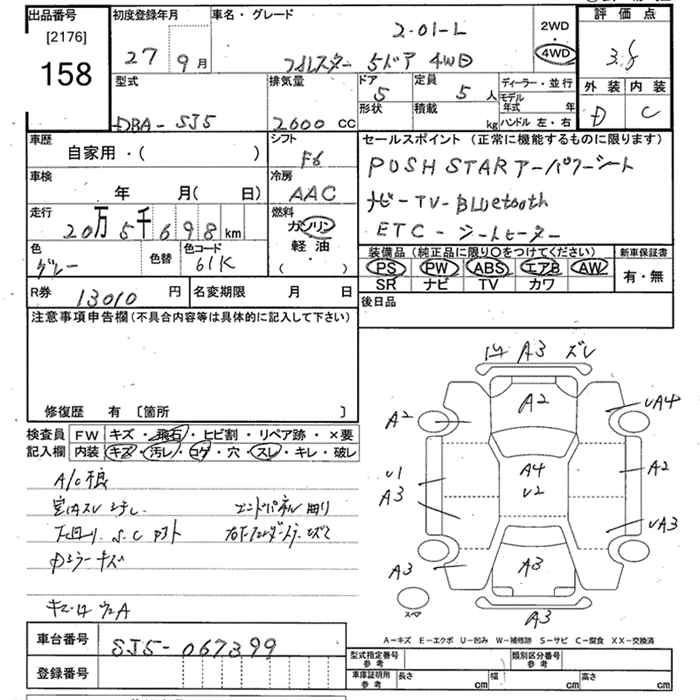 出品番号
[2176]
158
初度登録年月
27 9月
車名・グレード
2.0i-L
フォレスター 5ドア 4WD
2WD
・
4WD
評価点
3.5
外装 内装
D C
型式
DBA-SJ5
排気量
2000 CC
ドア
5
形状
定員
5 人
積載
kg
ディーラー・並行
モデル年式 年
ハンドル 左・右
車歴
自家用・( )
シフト
F6
車検
年 月( 日)
冷房
AAC
走行
20万5千698km
燃料
ガソリン
軽油
( ・ )
色
グレー
色替
色コード
61K
R券 13010 円
名変期限 月 日
セールスポイント (正常に機能するものに限ります)
PUSH STAR アーパワーシート
ナビー TV-Bluetooth
ETC - シートヒーター
装備品 (純正品に限り○をつけてください)
PS PW ABS エアB AW
SR ナビ TV カワ
新車保証書
有・無
後日品
注意事項申告欄(不具合内容等は具体的に記入して下さい)
修復歴 有 〔箇所 〕
検査員記入欄
FW キズ・飛石・ヒビ割・リペア跡・×要
内装 キズ・汚レ・コゲ・穴・スレ・キレ・破レ
A/C不良
室内スレ シテレ
エンドパネル曲り
下回り S.C アト
ドミラーキズ
キズ・凹 小A
A3 ズレ
A2
A2
UA4
U1
A3
A4
U2
A2
UA3
A3
A3
A3
スペア
A-キズ E-エクボ U-凹み W-補修跡 S-サビ C-腐食 XX-交換済
車台番号
SJ5-067399
登録番号
型式指定番号 参考
類別区分番号 参考
車庫証明用 参考
長さ cm
幅 cm
高さ cm